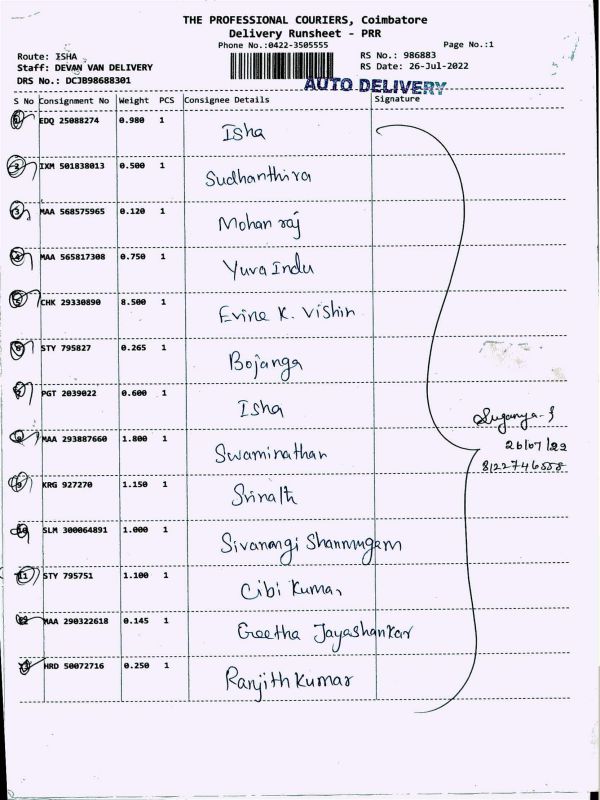 THE PROFESSIONAL COURIERS, Coimbatore
Delivery Runsheet - PRR
Phone No.:0422-3505555 Page No.:1
Route: ISHA RS No.: 986883
Staff: DEVAN VAN DELIVERY RS Date: 26-Jul-2022
DRS No.: DCJB98688301
AUTO DELIVERY
S No Consignment No Weight PCS Consignee Details Signature
1 EDQ 25088274 0.980 1 Isha
2 IXM 501838013 0.500 1 Sudhanthira
3 MAA 568575965 0.120 1 Mohan raj
4 MAA 565817308 0.750 1 Yuva Indu
5 CHK 29330890 8.500 1 Evine K. Vishin
6 STY 795827 0.265 1 Bojanga
7 PGT 2039022 0.600 1 Isha
Suganya.S
8 MAA 293887660 1.800 1 Swaminathan
26/07/22
8122746558
9 KRG 927270 1.150 1 Srinath
10 SLM 300064891 1.000 1 Sivanangi Shanmugam
11 STY 795751 1.100 1 Cibi Kumar
12 MAA 290322618 0.145 1 Geetha Jayashankar
13 HRD 50072716 0.250 1 Ranjith Kumar